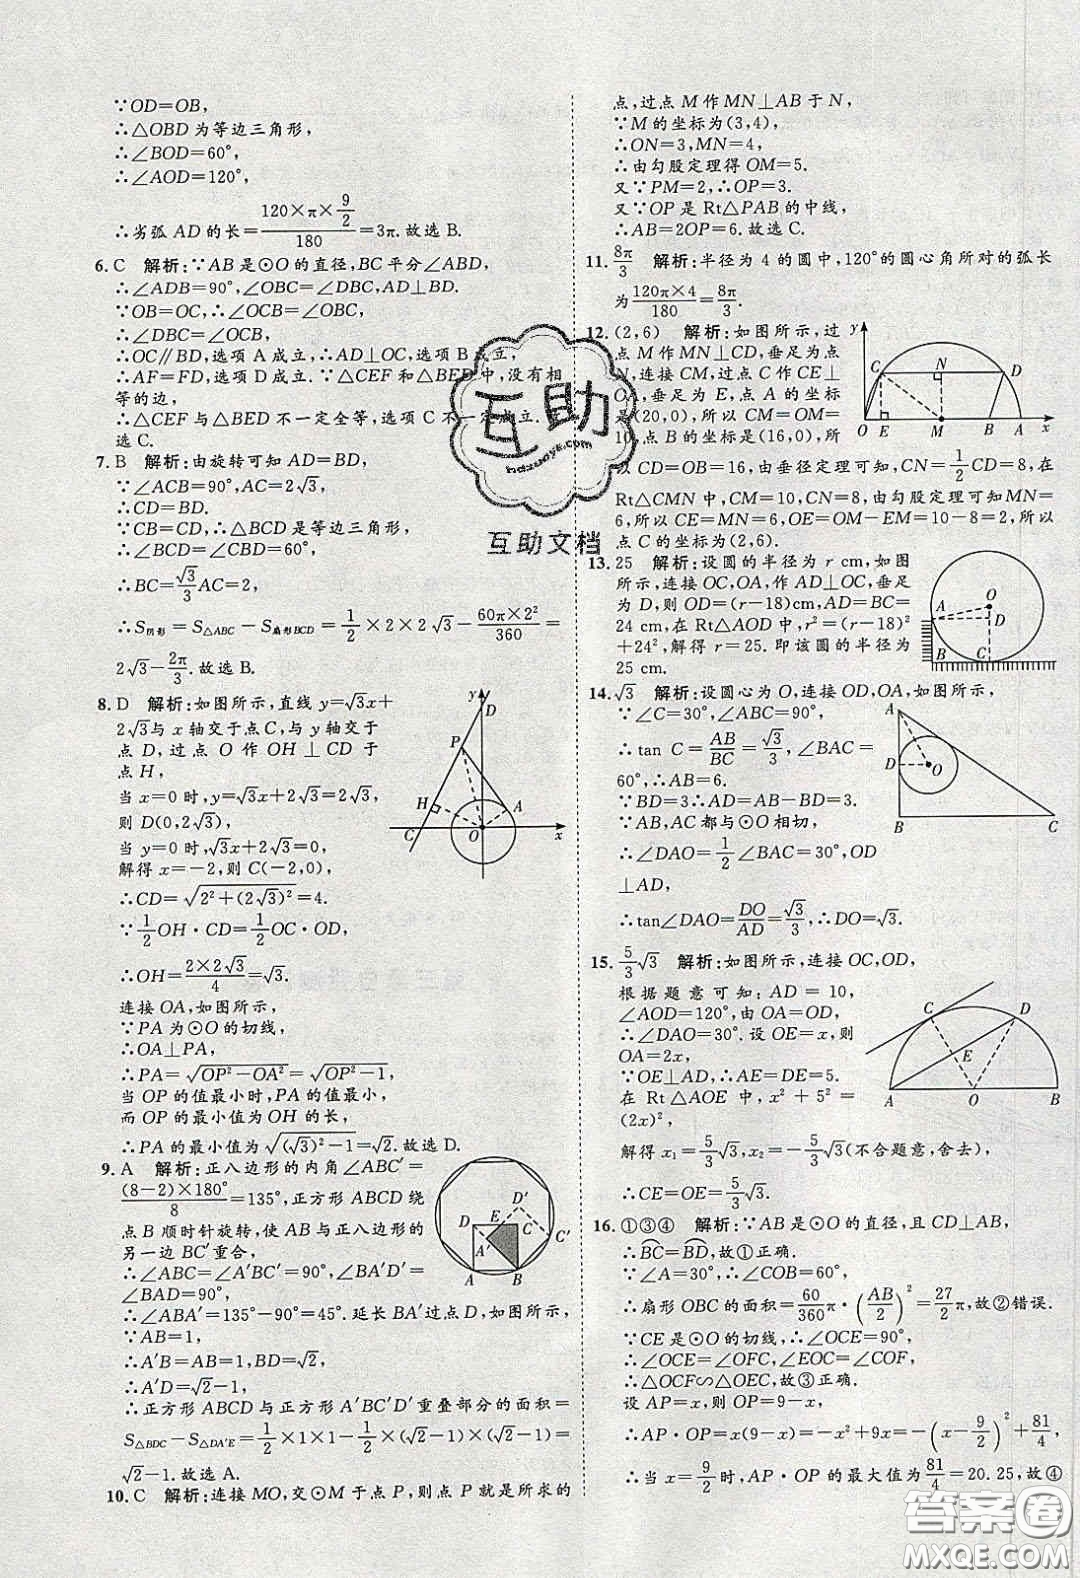 ∵OD=OB,
∴△OBD为等边三角形,
∴∠BOD=60°,
∴∠AOD=120°,
∴劣弧AD的长=(120×π×9/2)/180=3π.故选B.
6.C 解析:∵AB是⊙O的直径,BC平分∠ABD,
∴∠ADB=90°,∠OBC=∠DBC,AD⊥BD.
∵OB=OC,∴∠OCB=∠OBC,
∴∠DBC=∠OCB,
∴OC∥BD,选项A成立,∴AD⊥OC,
∴AF=FD,选项D成立.∵△CEF和△BED中,没有相
等的边,
∴△CEF与△BED不一定全等,选项C不一定成立.
选C.
7.B 解析:由旋转可知AD=BD,
∵∠ACB=90°,AC=2√3,
∴CD=BD.
∵CB=CD,∴△BCD是等边三角形,
∴∠BCD=∠CBD=60°,
∴BC=√3/3AC=2,
∴S阴影=S△ABC-S扇形BCD=1/2×2×2√3-60π×2²/360=
2√3-2π/3.故选B.
8.D 解析:如图所示,直线y=√3x+
2√3与x轴交于点C,与y轴交于
点D,过点O作OH⊥CD于
点H,
当x=0时,y=√3x+2√3=2√3,
则D(0,2√3),
当y=0时,√3x+2√3=0,
解得x=-2,则C(-2,0),
∴CD=√(2²+(2√3)²)=4.
∵1/2OH·CD=1/2OC·OD,
∴OH=(2×2√3)/4=√3.
连接OA,如图所示,
∵PA为⊙O的切线,
∴OA⊥PA,
∴PA=√(OP²-OA²)=√(OP²-1),
当OP的值最小时,PA的值最小,
而OP的最小值为OH的长,
∴PA的最小值为√((√3)²-1)=√2.故选D.
9.A 解析:正八边形的内角∠ABC′=
(8-2)×180°/8=135°,正方形ABCD绕
点B顺时针旋转,使AB与正八边形的
另一边BC′重合,
∴∠ABC=∠A′BC′=90°,∠BA′E=
∠BAD=90°,
∴∠ABA′=135°-90°=45°.延长BA′过点D,如图所示,
∵AB=1,
∴A′B=AB=1,BD=√2,
∴A′D=√2-1,
∴正方形ABCD与正方形A′BC′D′重叠部分的面积=
S△BDC-S△DA′E=1/2×1×1-1/2×(√2-1)×(√2-1)=
√2-1.故选A.
10.C 解析:连接MO,交⊙M于点P,则点P就是所求的
点,过点M作MN⊥AB于N,
∵M的坐标为(3,4),
∴ON=3,MN=4,
∴由勾股定理得OM=5.
又∵PM=2,∴OP=3.
又∵OP是Rt△PAB的中线,
∴AB=2OP=6.故选C.
11.8π/3 解析:半径为4的圆中,120°的圆心角所对的弧长
为120π×4/180=8π/3.
12.(2,6) 解析:如图所示,过
点M作MN⊥CD,垂足为点
N,连接CM,过点C作CE⊥
OA,垂足为E,点A的坐标
是(20,0),所以CM=OM=
10,点B的坐标为(16,0),所
以CD=OB=16,由垂径定理可知,CN=1/2CD=8,在
Rt△CMN中,CM=10,CN=8,由勾股定理可知MN=
6,所以CE=MN=6,OE=OM-EM=10-8=2,所以
点C的坐标为(2,6).
13.25 解析:设圆的半径为r cm,如图
所示,连接OC,OA,作AD⊥OC,垂足
为D,则OD=(r-18)cm,AD=BC=
24 cm,在Rt△AOD中,r²=(r-18)²
+24²,解得r=25.即该圆的半径为
25 cm.
14.√3 解析:设圆心为O,连接OD,OA,如图所示,
∵∠C=30°,∠ABC=90°,
∴tan C=AB/BC=√3/3,∠BAC=
60°,∴AB=6.
∵BD=3,∴AD=3.
∵AB,AC都与⊙O相切,
∴∠DAO=1/2∠BAC=30°,OD
⊥AD,
∴tan∠DAO=DO/AD=√3/3,∴DO=√3.
15.5/3√3 解析:如图所示,连接OC,OD,
根据题意可知:AD=10,
∠AOD=120°,由OA=OD,
∴∠DAO=30°.设OE=x,则
OA=2x,
∵OE⊥AD,∴AE=DE=5.
在Rt△AOE中,x²+5²=
(2x)²,
解得x₁=5/3√3,x₂=-5/3√3(不合题意,舍去),
∴CE=OE=5/3√3.
16.①③④ 解析:∵AB是⊙O的直径,且CD⊥AB,
∴⌒BC=⌒BD,故①正确.
∵∠A=30°,∴∠COB=60°,
∴扇形OBC的面积=60/360π·(AB/2)²=27/2π,故②错误.
∵CE是⊙O的切线,∴∠OCE=90°,
∴∠OCE=∠OFC,∠EOC=∠COF,
∴△OCF∽△OEC,故③正确.
设AP=x,则OP=9-x,
∴AP·OP=x(9-x)=-x²+9x=-(x-9/2)²+81/4,
∴当x=9/2时,AP·OP的最大值为81/4=20.25,故④
D
P
H
A
C
O
x
y
D′
D
E
C
C′
A′
A
B
y
C
N
D
O
E
M
B
A
x
O
A
D
B
C
A
D
O
B
C
C
D
E
A
O
B
互助
hdzuoye.com
互助文档
答案圈
MXQE.COM